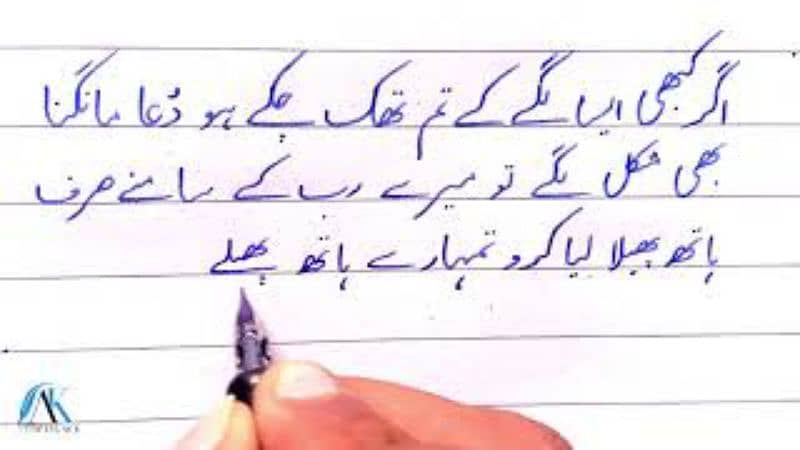 اگر کبھی ایسا لگے کے تم تھک چکے ہو دُعا مانگنا
بھی مشکل لگے تو میرے رب کے سامنے صرف
ہاتھ پھیلا لیا کرو تمہارے ہاتھ پھیلے
AK